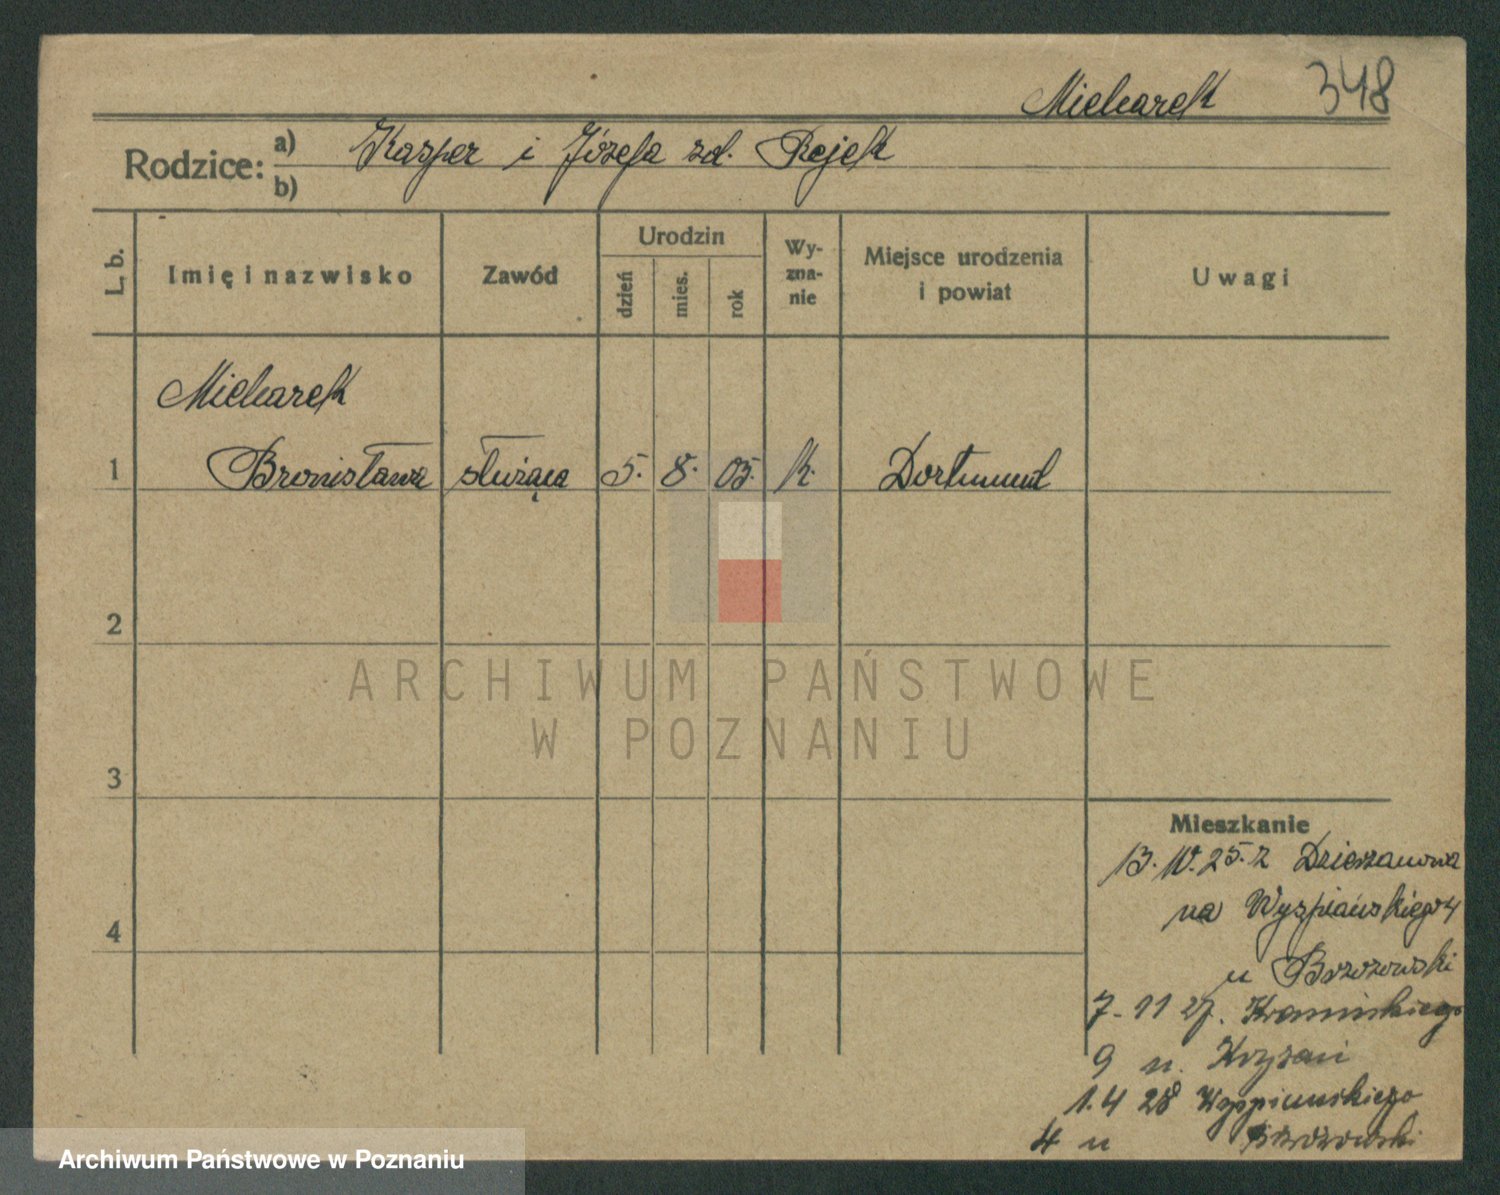 Micharek 348
Rodzice: a) Kasper i Józefa zd. Rejek
b)
L. b. Imię i nazwisko Zawód Urodzin dzień mies. rok Wy-zna-nie Miejsce urodzenia i powiat Uwagi
Micharek
1 Bronisława służąca 5. 8. 05. k. Dortmund
2
ARCHIWUM PAŃSTWOWE
W POZNANIU
3
Mieszkanie
13. IV. 25. z
na Wyspiańskiego 4
4
u Brzozowski
7. 11 27.
9 u.
1.4 28 Wyspiańskiego
4 u Brzozowski
Archiwum Państwowe w Poznaniu